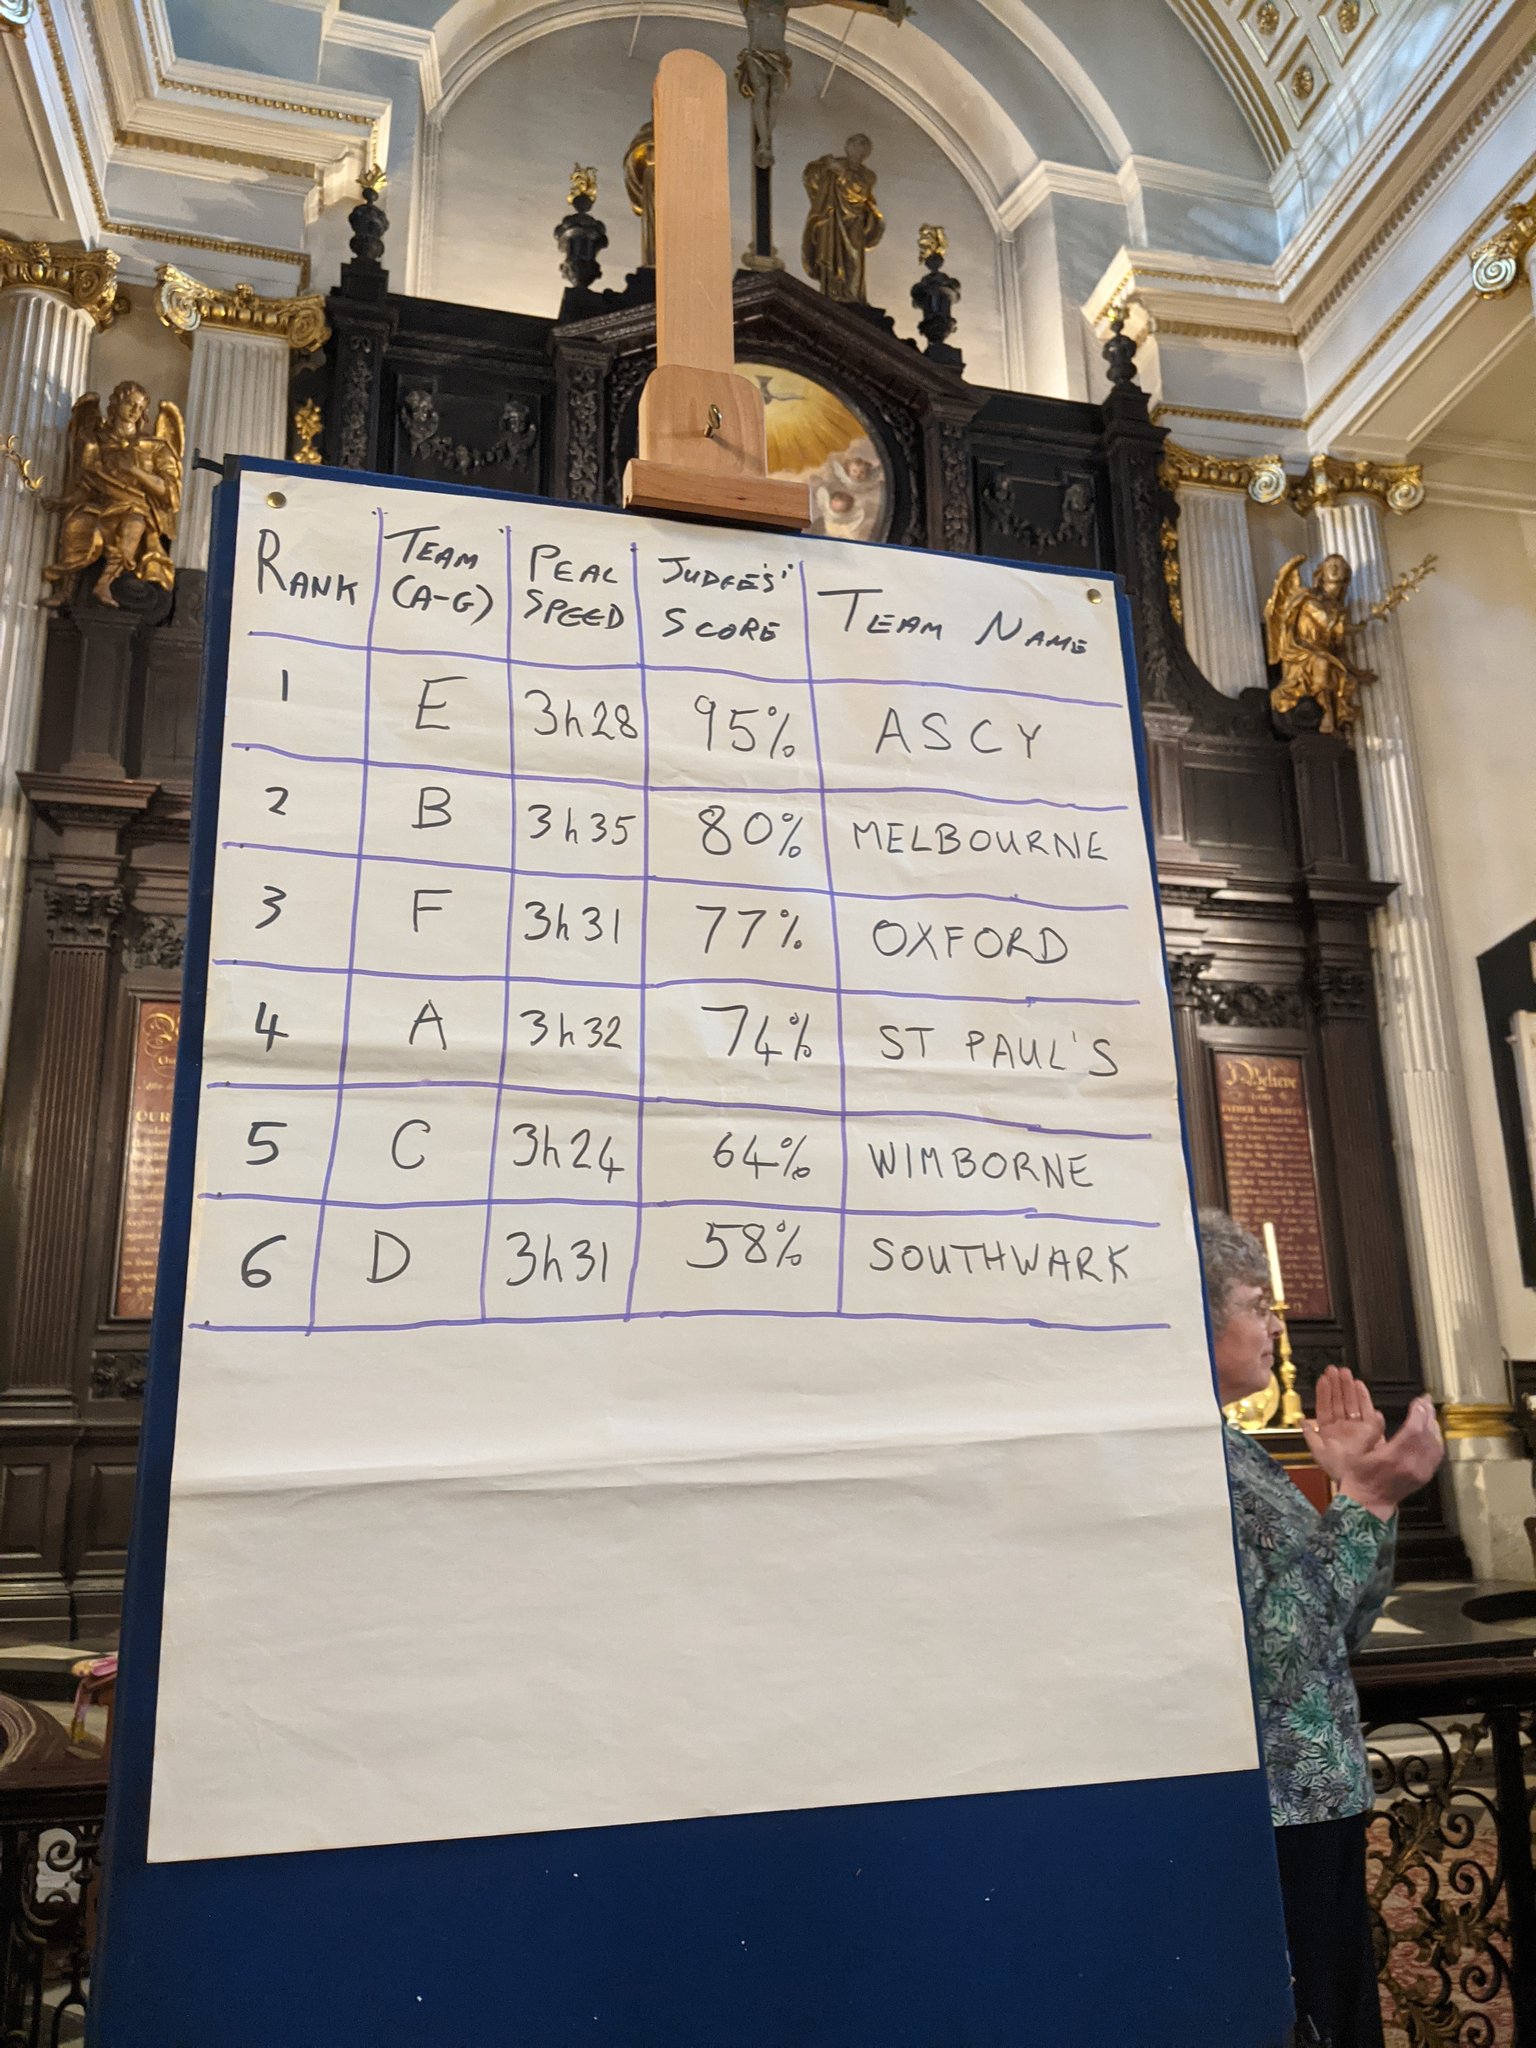 RANK TEAM (A-G) PEAL SPEED JUDGES' SCORE TEAM NAME
1 E 3h28 95% ASCY
2 B 3h35 80% MELBOURNE
3 F 3h31 77% OXFORD
4 A 3h32 74% ST PAUL'S
5 C 3h24 64% WIMBORNE
6 D 3h31 58% SOUTHWARK
OUR
I Believe